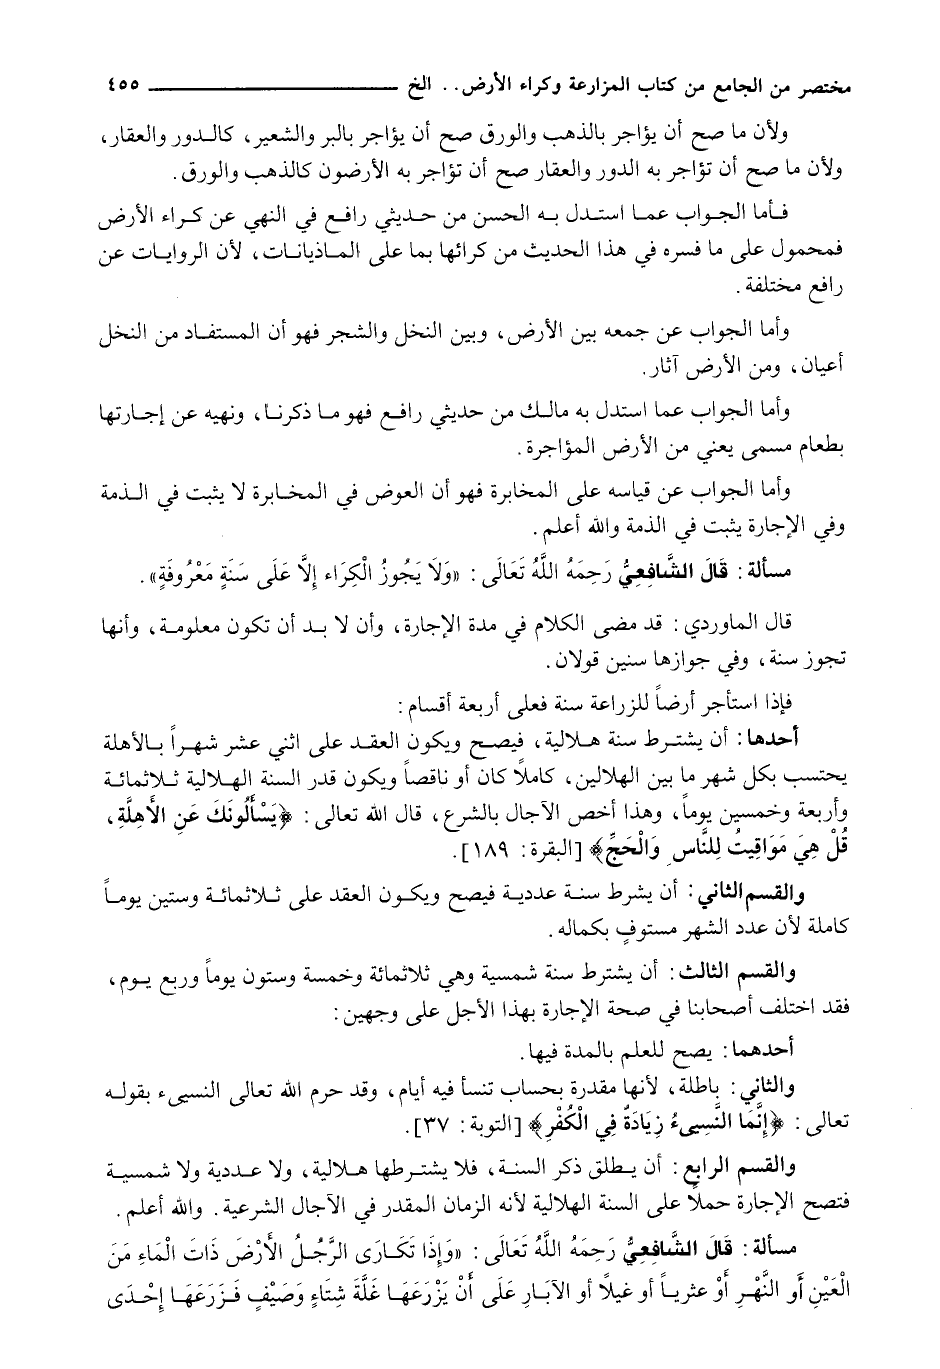 مختصر من الجامع من كتاب المزارعة وكراء الأرض.. الخ ـــــــــــــــــــــــــ ٤٥٥
ولأن ما صح أن يؤاجر بالذهب والورق صح أن يؤاجر بالبر والشعير، كالدور والعقار،
ولأن ما صح أن تؤاجر به الدور والعقار صح أن تؤاجر به الأرضون كالذهب والورق.
فأما الجواب عما استدل به الحسن من حديثي رافع في النهي عن كراء الأرض
فمحمول على ما فسره في هذا الحديث من كرائها بما على الماذيانات، لأن الروايات عن
رافع مختلفة.
وأما الجواب عن جمعه بين الأرض، وبين النخل والشجر فهو أن المستفاد من النخل
أعيان، ومن الأرض آثار.
وأما الجواب عما استدل به مالك من حديثي رافع فهو ما ذكرنا، ونهيه عن إجارتها
بطعام مسمى يعني من الأرض المؤاجرة.
وأما الجواب عن قياسه على المخابرة فهو أن العوض في المخابرة لا يثبت في الذمة
وفي الإجارة يثبت في الذمة والله أعلم.
مسألة: قَالَ الشَّافِعِيُّ رَحِمَهُ اللَّهُ تَعَالَى: «وَلَا يَجُوزُ الْكِرَاء إِلَّا عَلَى سَنَةٍ مَعْرُوفَةٍ».
قال الماوردي: قد مضى الكلام في مدة الإجارة، وأن لا بد أن تكون معلومة، وأنها
تجوز سنة، وفي جوازها سنين قولان.
فإذا استأجر أرضاً للزراعة سنة فعلى أربعة أقسام:
أحدها: أن يشترط سنة هلالية، فيصح ويكون العقد على اثني عشر شهراً بالأهلة
يحتسب بكل شهر ما بين الهلالين، كاملاً كان أو ناقصاً ويكون قدر السنة الهلالية ثلاثمائة
وأربعة وخمسين يوماً، وهذا أخص الآجال بالشرع، قال الله تعالى: ﴿يَسْأَلُونَكَ عَنِ الأَهِلَّةِ،
قُلْ هِيَ مَوَاقِيتُ لِلنَّاسِ وَالْحَجِّ﴾ [البقرة: ١٨٩].
والقسم الثاني: أن يشرط سنة عددية فيصح ويكون العقد على ثلاثمائة وستين يوماً
كاملة لأن عدد الشهر مستوفٍ بكماله.
والقسم الثالث: أن يشترط سنة شمسية وهي ثلاثمائة وخمسة وستون يوماً وربع يوم،
فقد اختلف أصحابنا في صحة الإجارة بهذا الأجل على وجهين:
أحدهما: يصح للعلم بالمدة فيها.
والثاني: باطلة، لأنها مقدرة بحساب تنسأ فيه أيام، وقد حرم الله تعالى النسيء بقوله
تعالى: ﴿إِنَّمَا النَّسِيءُ زِيَادَةٌ فِي الْكُفْرِ﴾ [التوبة: ٣٧].
والقسم الرابع: أن يطلق ذكر السنة، فلا يشترطها هلالية، ولا عددية ولا شمسية
فتصح الإجارة حملاً على السنة الهلالية لأنه الزمان المقدر في الآجال الشرعية. والله أعلم.
مسألة: قَالَ الشَّافِعِيُّ رَحِمَهُ اللَّهُ تَعَالَى: «وَإِذَا تَكَارَى الرَّجُلُ الأَرْضَ ذَاتَ الْمَاءِ مَنَ
الْعَيْنِ أَوِ النَّهْرِ أَوْ عثرياً أو غيلاً أو الآبَارِ عَلَى أَنْ يَزْرَعَهَا غَلَّةَ شِتَاءٍ وَصَيْفٍ فَزَرَعَهَا إِحْدَى